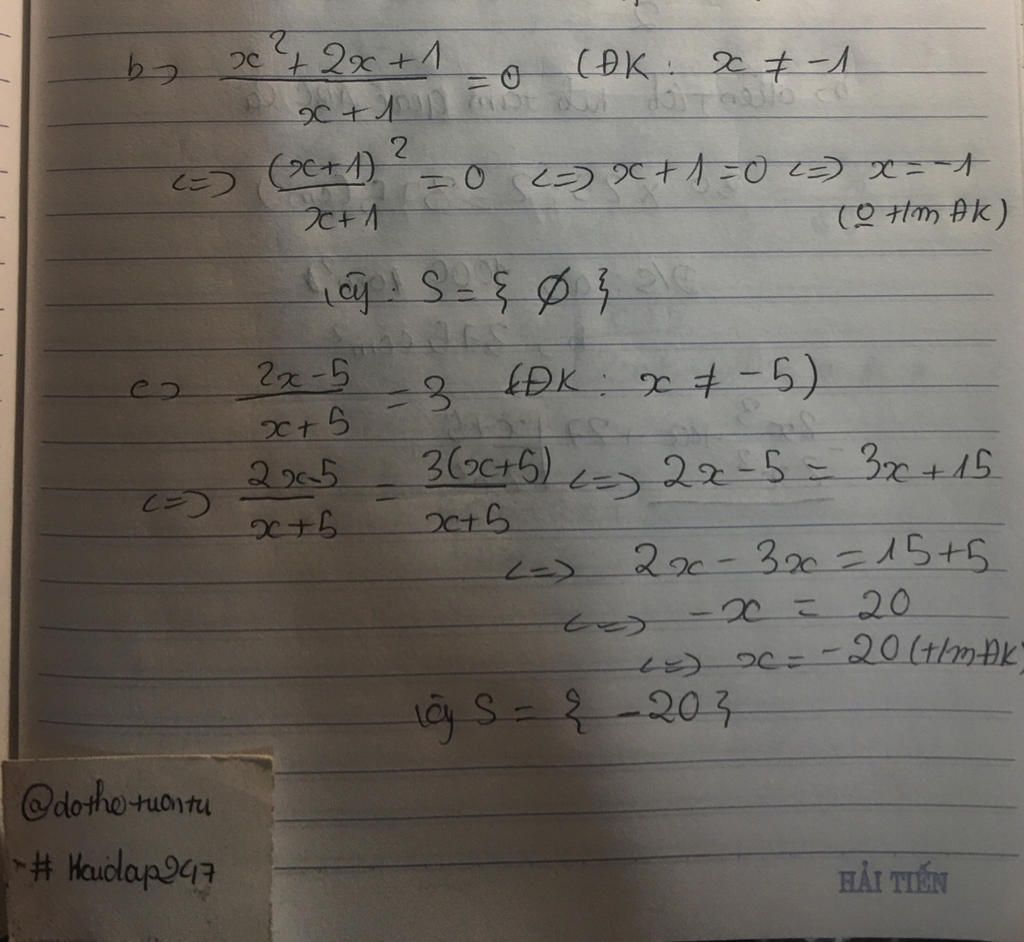 b⇒ x²+2x+1 / x+1 = 0 (ĐK: x ≠ -1
<=> (x+1)² / x+1 = 0 <=> x+1=0 <=> x=-1
(0 t/m ĐK)
Vậy: S = { Ø }
c⇒ 2x-5 / x+5 = 3 (ĐK: x ≠ -5)
<=> 2x-5 / x+5 = 3(x+5) / x+5 <=> 2x-5 = 3x+15
<=> 2x - 3x = 15+5
<=> -x = 20
<=> x = -20 (t/m ĐK)
Vậy S = { -20 }
@dothetuantu
# Hoidap247
HẢI TIẾN